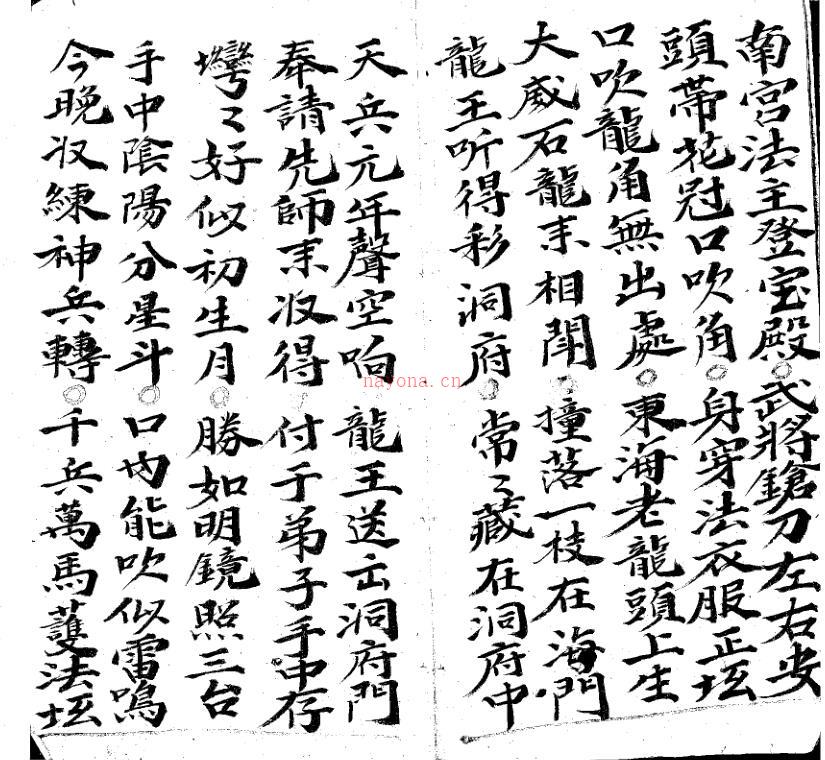 南宫法主登宝殿○武將鎗刀左右安
頭帶花冠口吹角○身穿法衣服正坛
口吹龍角無出處○東海老龍頭上生
大威石龍来相鬧○撞落一枝在海門
龍王听得彩洞府○常〻藏在洞府中
天兵元年聲空响 龍王送出洞府門
奉請先師来收得 付于弟子手中存
彎〻好似初生月○勝如明鏡照三台
手中陰陽分星斗○口内能吹似雷鳴
今晚收練神兵轉○千兵萬馬護法坛
nayona.cn